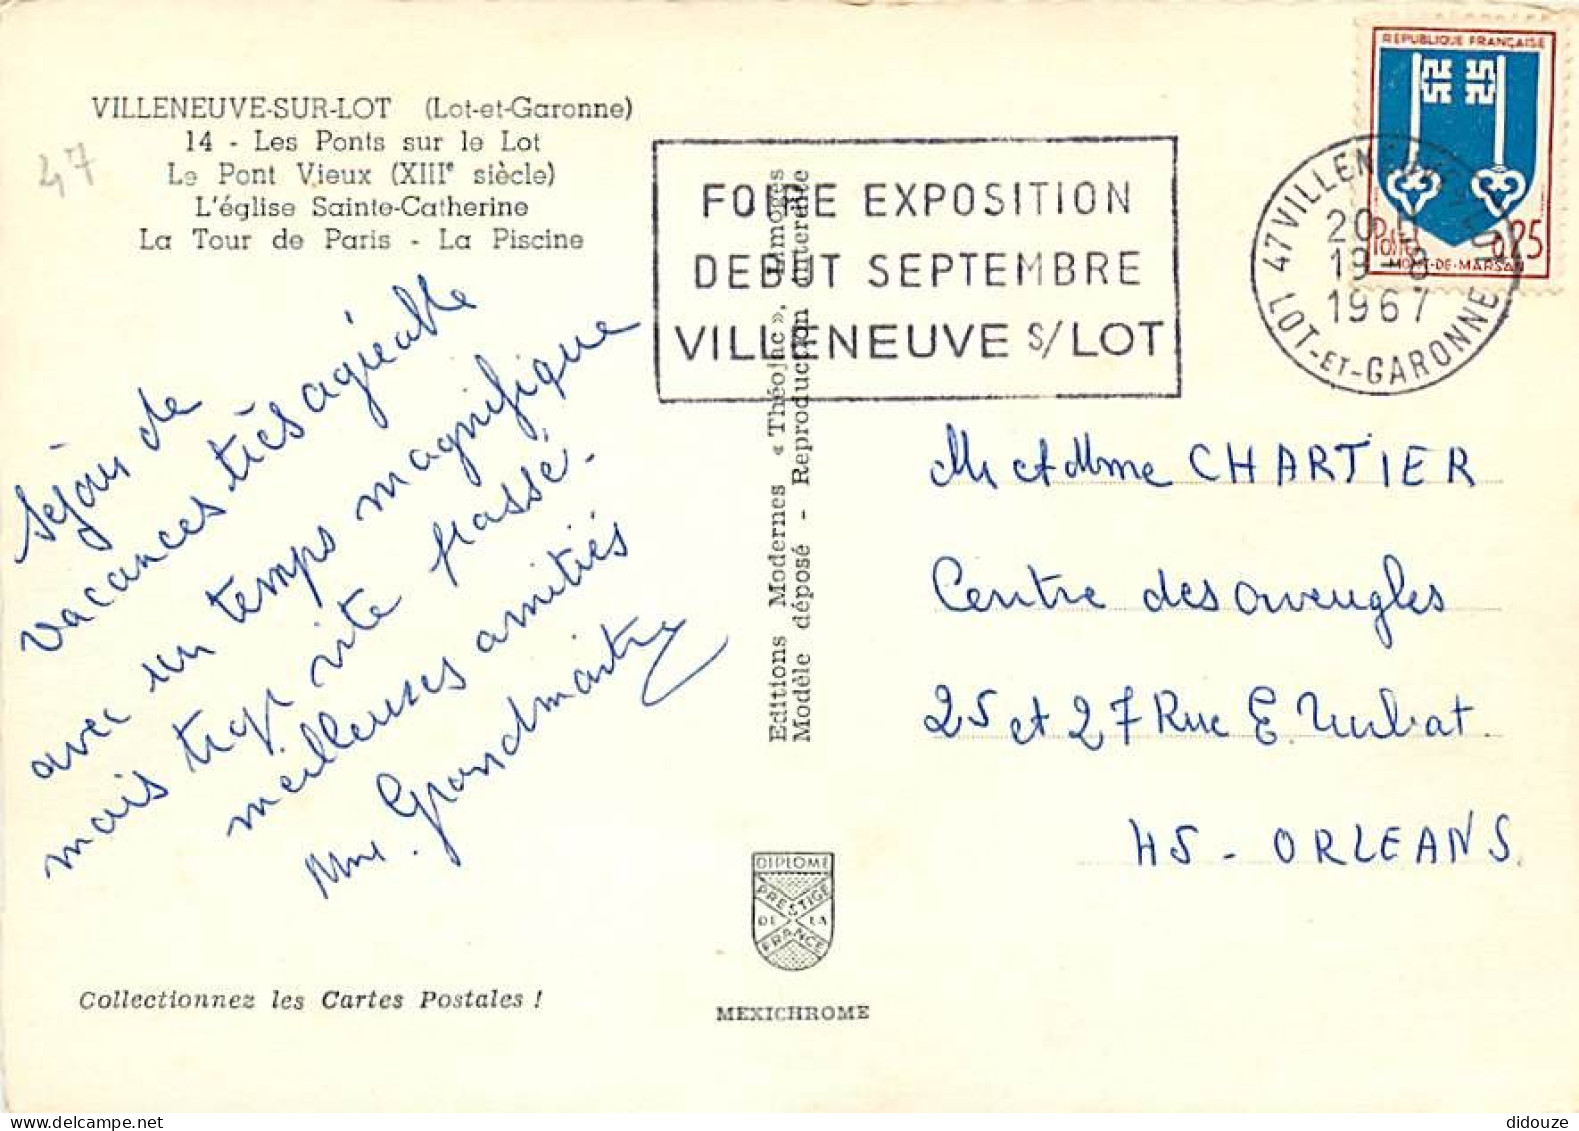 VILLENEUVE-SUR-LOT (Lot-et-Garonne)
14 - Les Ponts sur le Lot
Le Pont Vieux (XIIIe siècle)
L'église Sainte-Catherine
La Tour de Paris - La Piscine
47
Séjour de
vacances très agréable
avec un temps magnifique
mais trop vite passé.
meilleures amitiés
Mme. Grandmaitre
Collectionnez les Cartes Postales !
FOIRE EXPOSITION
DEBUT SEPTEMBRE
VILLENEUVE S/LOT
Editions Modernes « Théojac », Limoges
Modèle déposé - Reproduction interdite
DIPLOME
PRESTIGE
DE LA
FRANCE
MEXICHROME
REPUBLIQUE FRANÇAISE
Postes 0,25
MONT-DE-MARSAN
47 VILLENEUVE S/LOT
20 H
19-8
1967
LOT-ET-GARONNE
Mr et Mme CHARTIER
Centre des aveugles
25 et 27 Rue E. Vubat.
45 - ORLEANS.
didouze